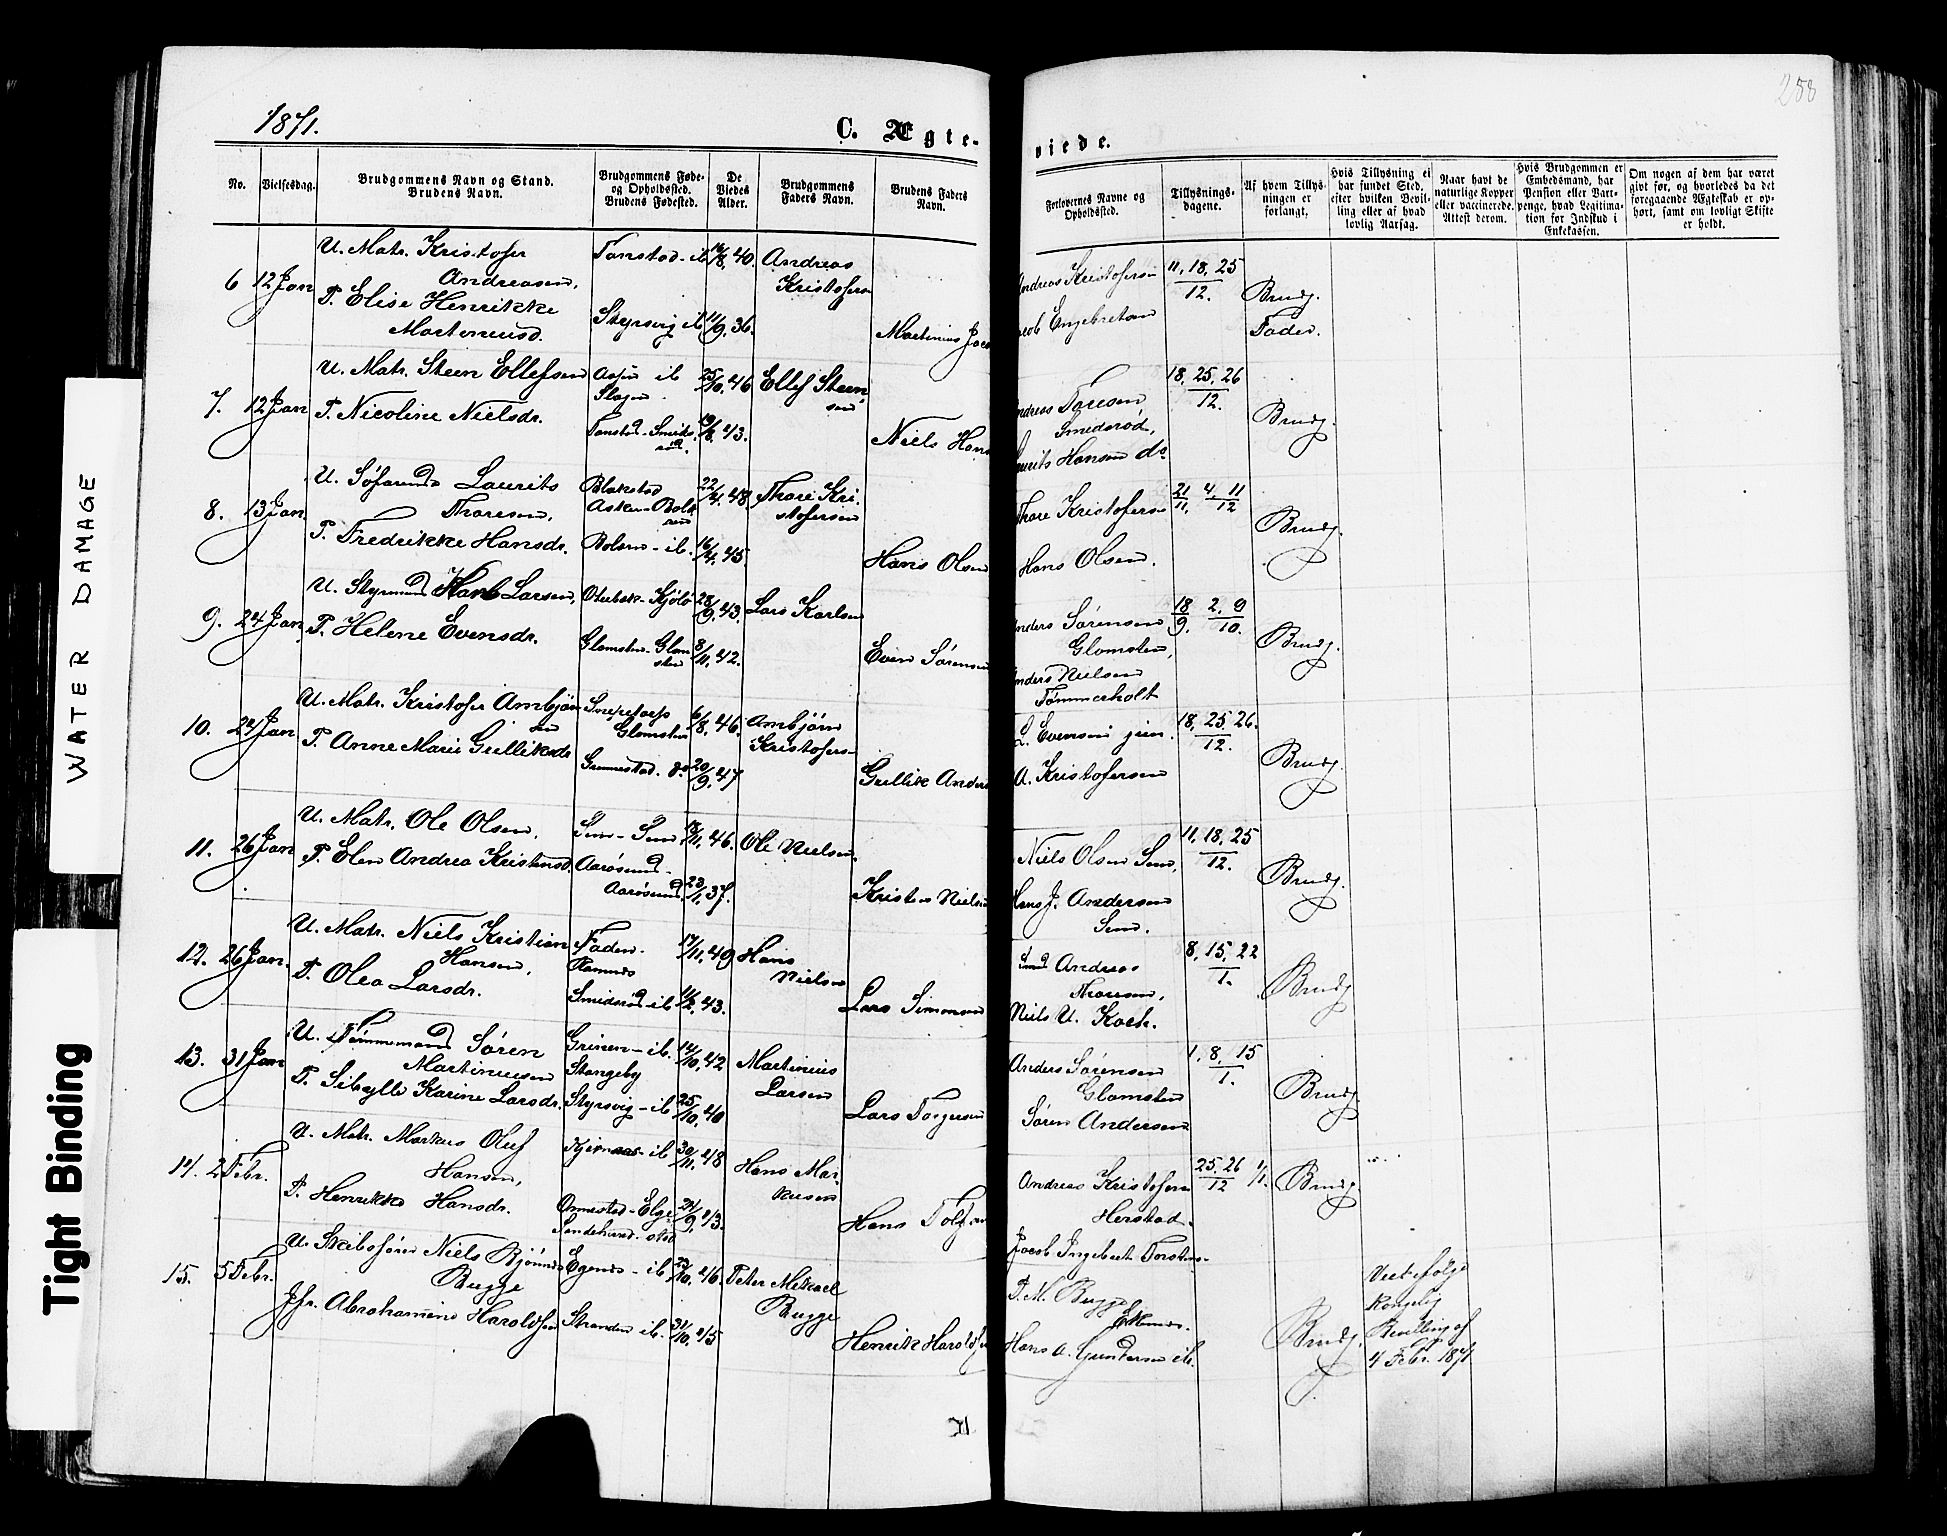 1871.
C. Ægte-
viede.
258
No.
Vielsesdag.
Brudgommens Navn og Stand.
Brudens Navn.
Brudgommens Føde-
og Opholdssted.
Brudens Fødested.
De
Viedes
Alder.
Brudgommens
Faders Navn.
Brudens Faders
Navn.
Forlovernes Navne og
Opholdssted.
Tillysnings-
dagene.
Af hvem Tillys-
ningen er
forlangt.
Hvis Tillysning ei
har fundet Sted,
efter hvilken Bevil-
ling eller af hvad
lovlig Aarsag.
Naar havt de
naturlige Kopper
eller vaccinerede.
Attest derom.
Hvis Brudgommen er
Embedsmand, har
Pension eller Var-
penge, hvad Legitima-
tion for Indskud i
Enkekassen.
Om nogen af dem har været
gift før, og hvorledes da det
foregaaende Ægteskab er op-
hørt, samt om lovligt Skifte
er holdt.
6 12 Jan
U. Matr. Kristofer
Andreasen,
P. Elise Henrikke
Martinusd.
Tanstad - ib
Styrsvig ib
16/8 40.
11/9 36.
Andreas
Kristofersen
Martinius Jaco
Andreas Kristofersen
Jacob Engebretsen
11, 18, 25
12.
Brudg.
Fader.
7. 12 Jan
U. Matr. Steen Ellefsen
P. Nicoline Nielsdr.
ib
Slagen
Tanstad - Smids-
rød.
25/10 46
19/8 43.
Ellef Steen
sen
Niels Hans
Andreas Toresen
Smedsrød,
Laurits Hansen do
18, 25, 26
12.
Brudg.
8. 13 Jan.
U. Søfarende Laurits
Thoresen,
P. Fredrikke Hansdr.
Blakstad
Asker - Bols
ren
Bolæren - ib.
22/4 48.
16/4 45.
Thore Kri-
stofersen
Hans Olsen
Thore Kristofersen
Hans Olsen.
21/11. 4, 11/12
Brudg.
9. 24 Jan.
U. Styrmand Karl Larsen,
P. Helene Evensdr.
Oterbek - Kjølø
Glomsten - Glom-
sten
28/9 43.
8/11 42.
Lars Karlsen
Even Sørensen
Anders Sørensen
Glomsten,
Anders Nielsen
Tømmerholt
18/9. 2, 9/10.
Brudg.
10. 24 Jan
U. Matr. Kristofer Ambjørn
sen
P. Anne Marie Gullikesdr
Snepetorp
Glomsten
Grimestad. do
6/8 46.
20/9 47
Ambjørn
Kristofers-
Gullik Anders
L. Evensen jun.
A. Kristofersen
18, 25, 26.
12.
Brudg.
11. 26 Jan
U. Matr. Ole Olsen,
P. Elen Andrea Kristensd.
Sem - Sem
Aarøsund -
Aarøsund
18/11 46.
23/1 37.
Ole Nielsen.
Kristen Nielsen
Niels Olsen Sem,
Hans J. Andersen
Sem.
11, 18, 25
12.
Brudg.
12. 26 Jan.
U. Matr. Niels Kristian
Hansen,
P. Olea Larsdr.
Faden -
Ramnes
Smidsrød - ib
17/11 49
11/2 43.
Hans
Nielsen
Lars Simonsen
Smed Andreas
Thoresen,
Niels U. Koch.
8, 15, 22
1.
Brudg
13. 31 Jan
U. Tømmermand Søren
Martinusen
P. Sibylle Karine Larsdr.
Grinen - ib.
Stangeby
Styrsvig - ib
14/10 42
25/10 40
Martinius
Larsen
Lars Torgersen
Anders Sørensen
Glomsten
Søren Andersen
1, 8, 15
1.
Brudg.
14. 2 Febr.
U. Matr. Markus Oluf
Hansen,
P. Henrikke Hansdr.
Kjernaas - ib
Ormestad - Elge-
Sandeherred - stad
30/11 48
24/9 43.
Hans Mar-
kusen
Hans Tolfsen
Andreas Kristofersen
Herstad.
Jacob Ingebret Torsten-
25, 26/12 1/1.
Brudg.
15. 5 Febr.
U. Skibsfører Niels Bjønnes
Bugge
Jfr. Abrahamine Haroldsen
Egenes - ib
Stranden ib.
23/10. 46.
31/10. 45
Peter Mikael
Bugge
Henrik Haroldsen
P. M. Bugge
Ekenes.
Hans A. Gundersen ib.
Brudg.
Ved ifølge
Kongelig
Bevilling af
4 Febr. 1871
WATER DAMAGE
Tight Binding